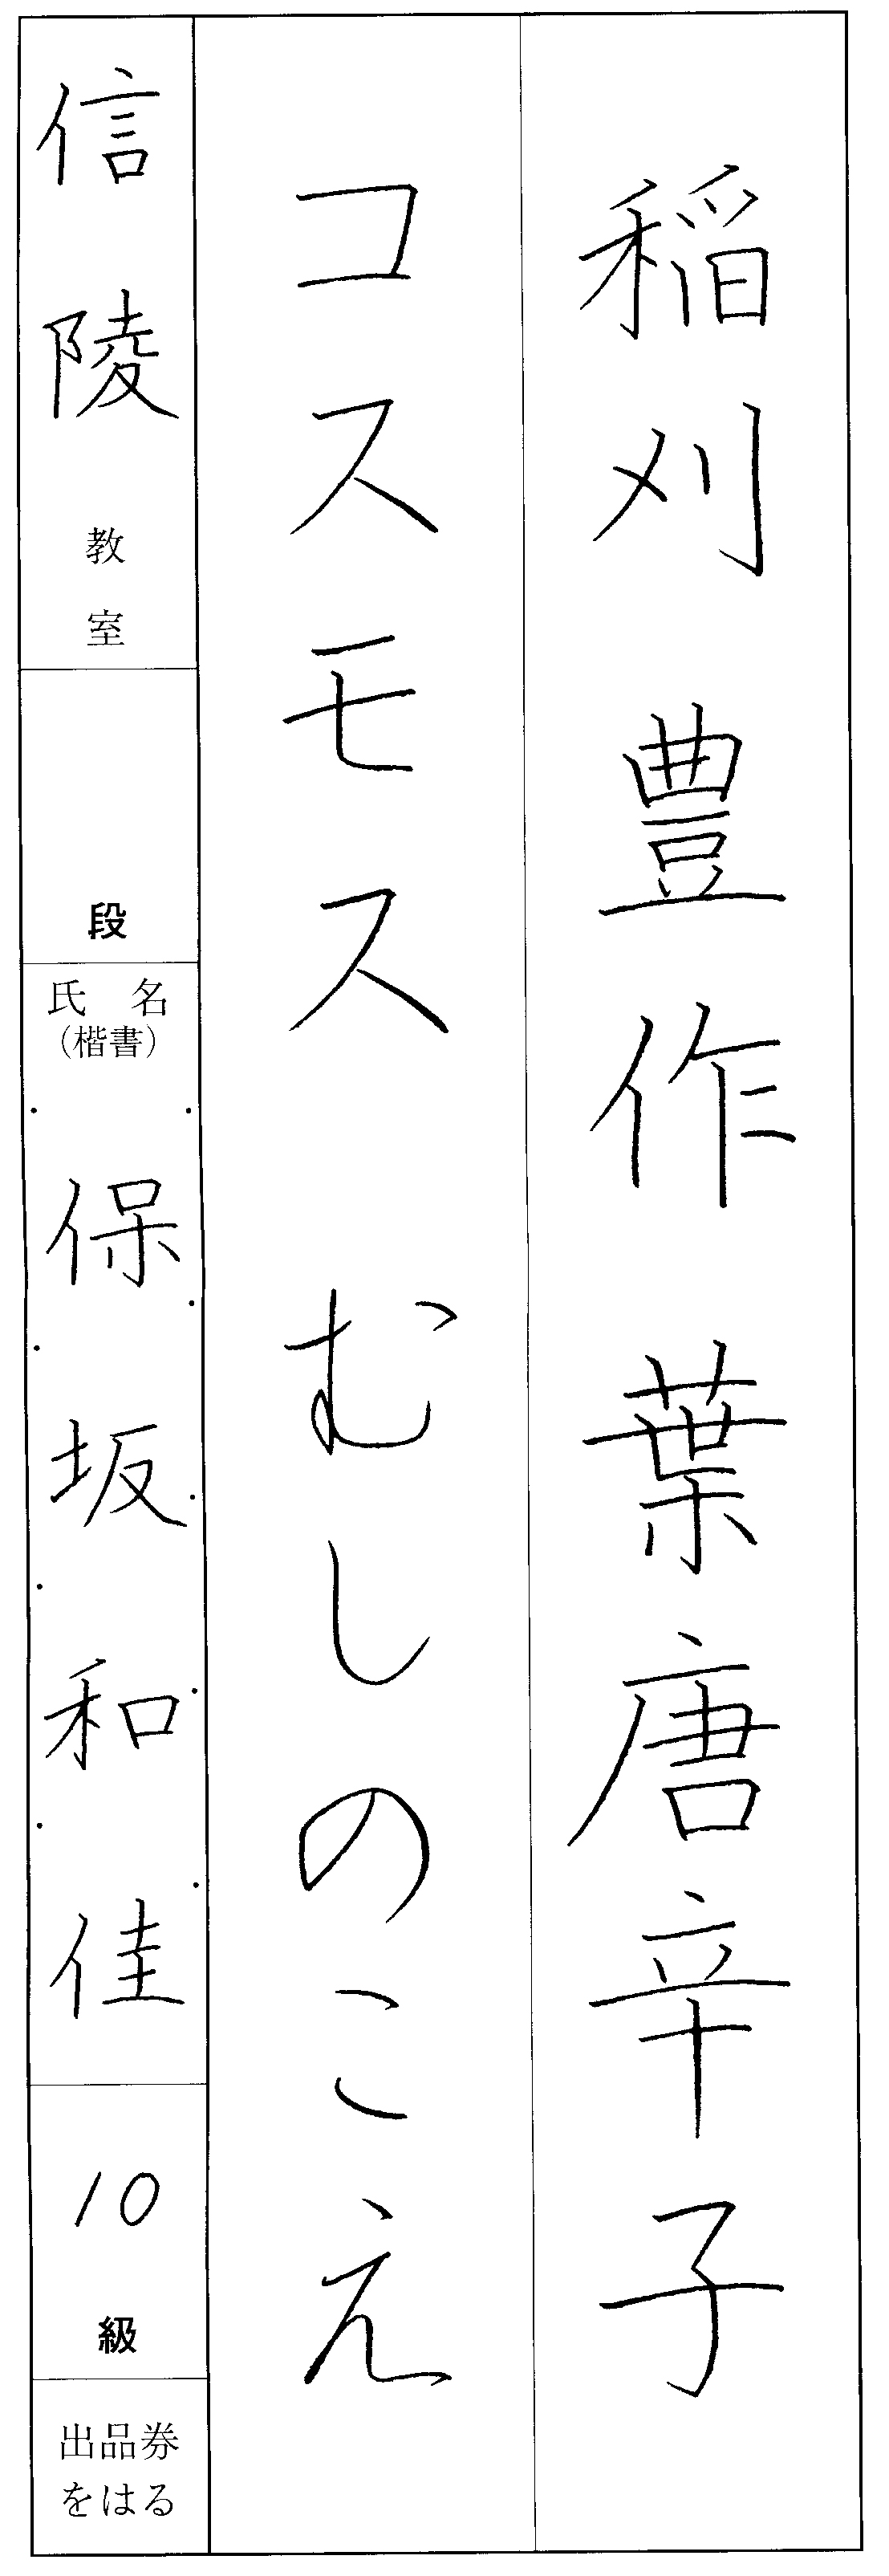 稲刈豊作葉唐辛子
コスモス むしのこえ
信陵教室
段
氏名
(楷書)
保坂和佳
10級
出品券
をはる